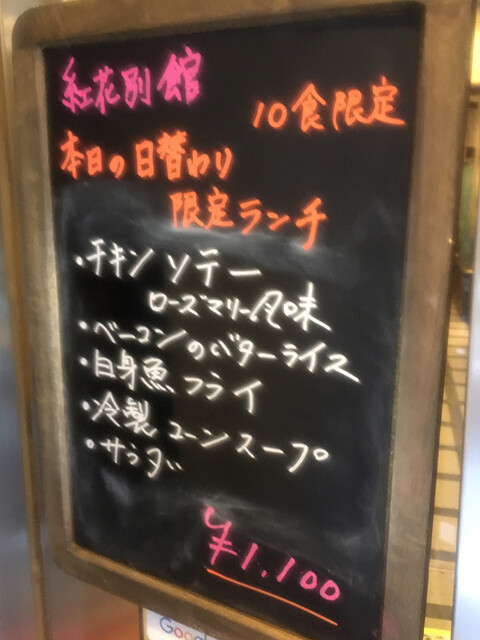 紅花別館
10食限定
本日の日替わり
限定ランチ
・チキンソテー
ローズマリー風味
・ベーコンのバターライス
・白身魚フライ
・冷製コーンスープ
・サラダ
¥1.100
Google